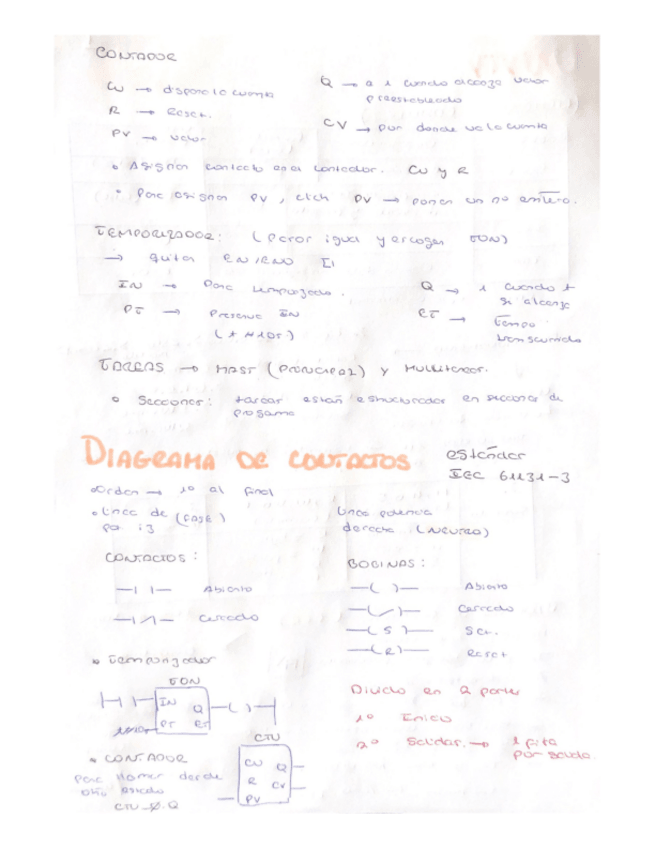 CONTADOR
CU → dispara la cuenta
R → Reset.
PV → valor
Q → a 1 cuando alcanza valor
preestablecido
CV → por donde va la cuenta
• Asignar contacto en el contador. CU y R
• Para asignar PV, click PV → poner un nº entero.
TEMPORIZADOR: (parar igual y escoger TON)
→ quitar EN/ENO
IN → Para temporizador.
PT → Preserve IN
Q → 1 cuando t
se alcanza
ET → Tiempo
transcurrido
TAREAS → MAST (PRINCIPAL) y Multitarea.
• Secciones: tareas están estructuradas en secciones de
programa
DIAGRAMA DE CONTACTOS
estándar
IEC 61131-3
• Orden → 1º al final
• Línea de (FASE)
por iz
Línea potencia
derecha (NEUTRO)
CONTACTOS:
Abierto
Cerrado
BOBINAS:
Abierto
Cerrado
S Set.
R Reset
• Temporizador
TON
IN Q
PT ET
• CONTADOR
para llamar desde
otro estado
CTU_0.Q
CTU
CU Q
R CV
PV
Divido en 2 partes
1º Inicio
2º Salidas. → 1 fila
por salida.